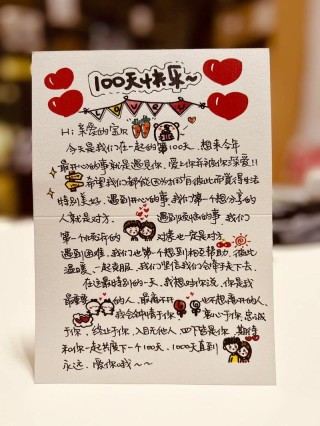 100天快乐~
LOVE
Hi：亲爱的宝贝
今天是我们在一起的第100天，想来今年
最开心的事就是遇见你，爱上你并被你深爱！！
希望我们都能因为拥有彼此而觉得生活
特别美好，遇到开心的事，我们第一个想分享的
人就是对方。遇到烦恼的事，我们
第一个倾诉的对象也一定是对方。
遇到困难，我们也第一个想到相互帮助，彼此
温暖、一起克服，我们坚信我们会牵手走下去。
在这最特别的一天，我想对你说，你是我
最重要的人，最离不开也不想离开的人，
我会钟情于你，衷心于你，忠诚
于你，终止于你，入目无他人，四下皆是你，期待
和你一起共度下一个100天、1000天直到
永远，爱你哦~~